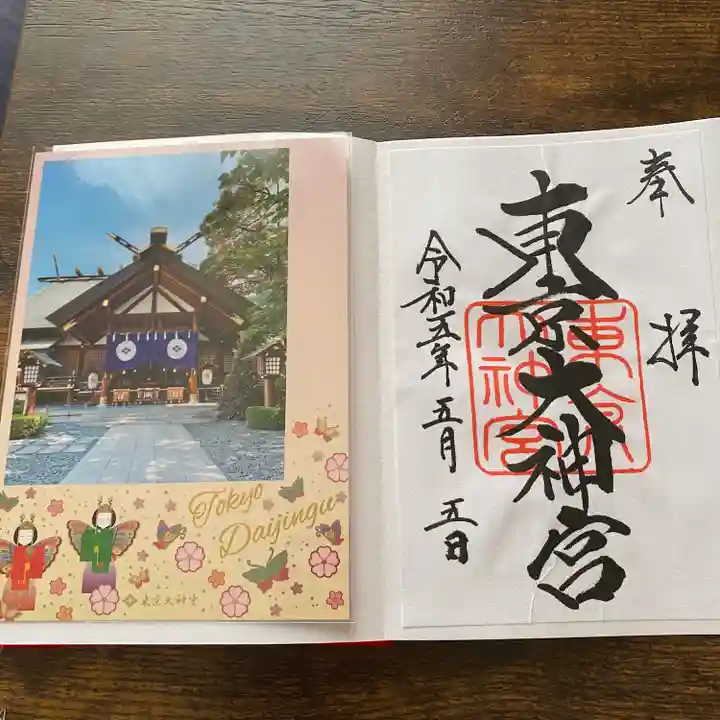 Tokyo
Daijingu
東京大神宮
奉拝
東京大神宮
東京大神宮
令和五年 五月 五日